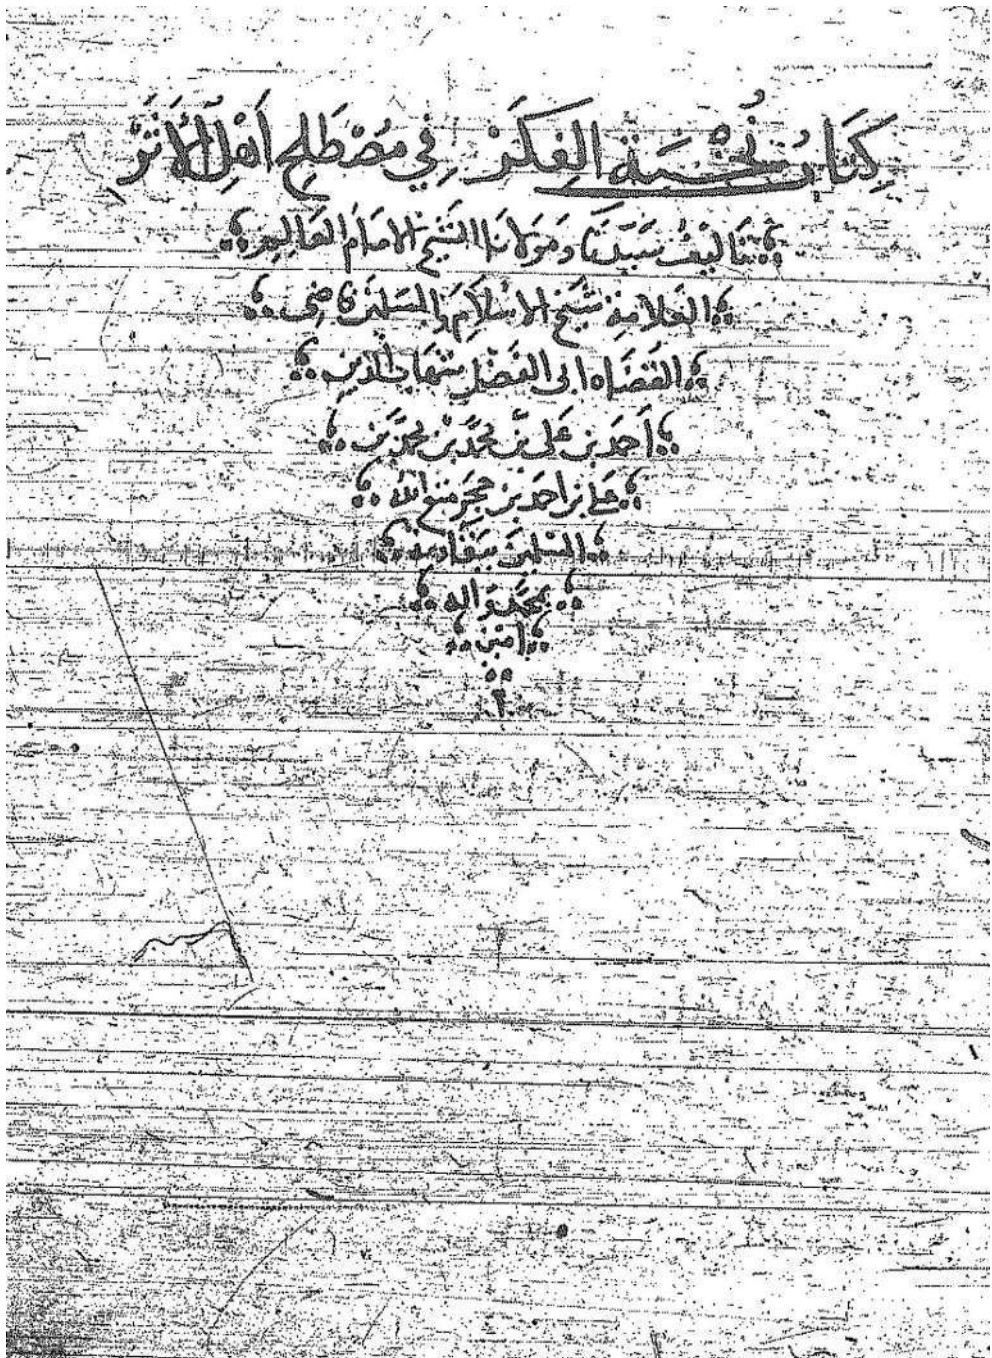 كِتَابُ نُخْبَةِ الفِكَرْ فِي مُصْطَلَحِ أَهْلِ الْأَثَرْ
تاليف سيدنا ومولانا الشيخ الامام العالم
العلامة شيخ الاسلام والمسلمين قاضي
القضاه ابى الفضل شهاب الدين
احمد بن على بن محمد بن محمد بن
على بن احمد بن حجر متع الله
المسلمين ببقايه
بمحمد واله
امين